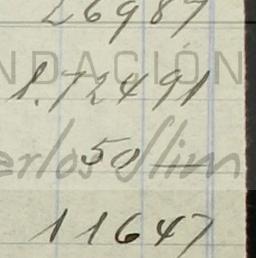 26987
NDACIÓN
1.72491
erlos Slim
50 —
11647